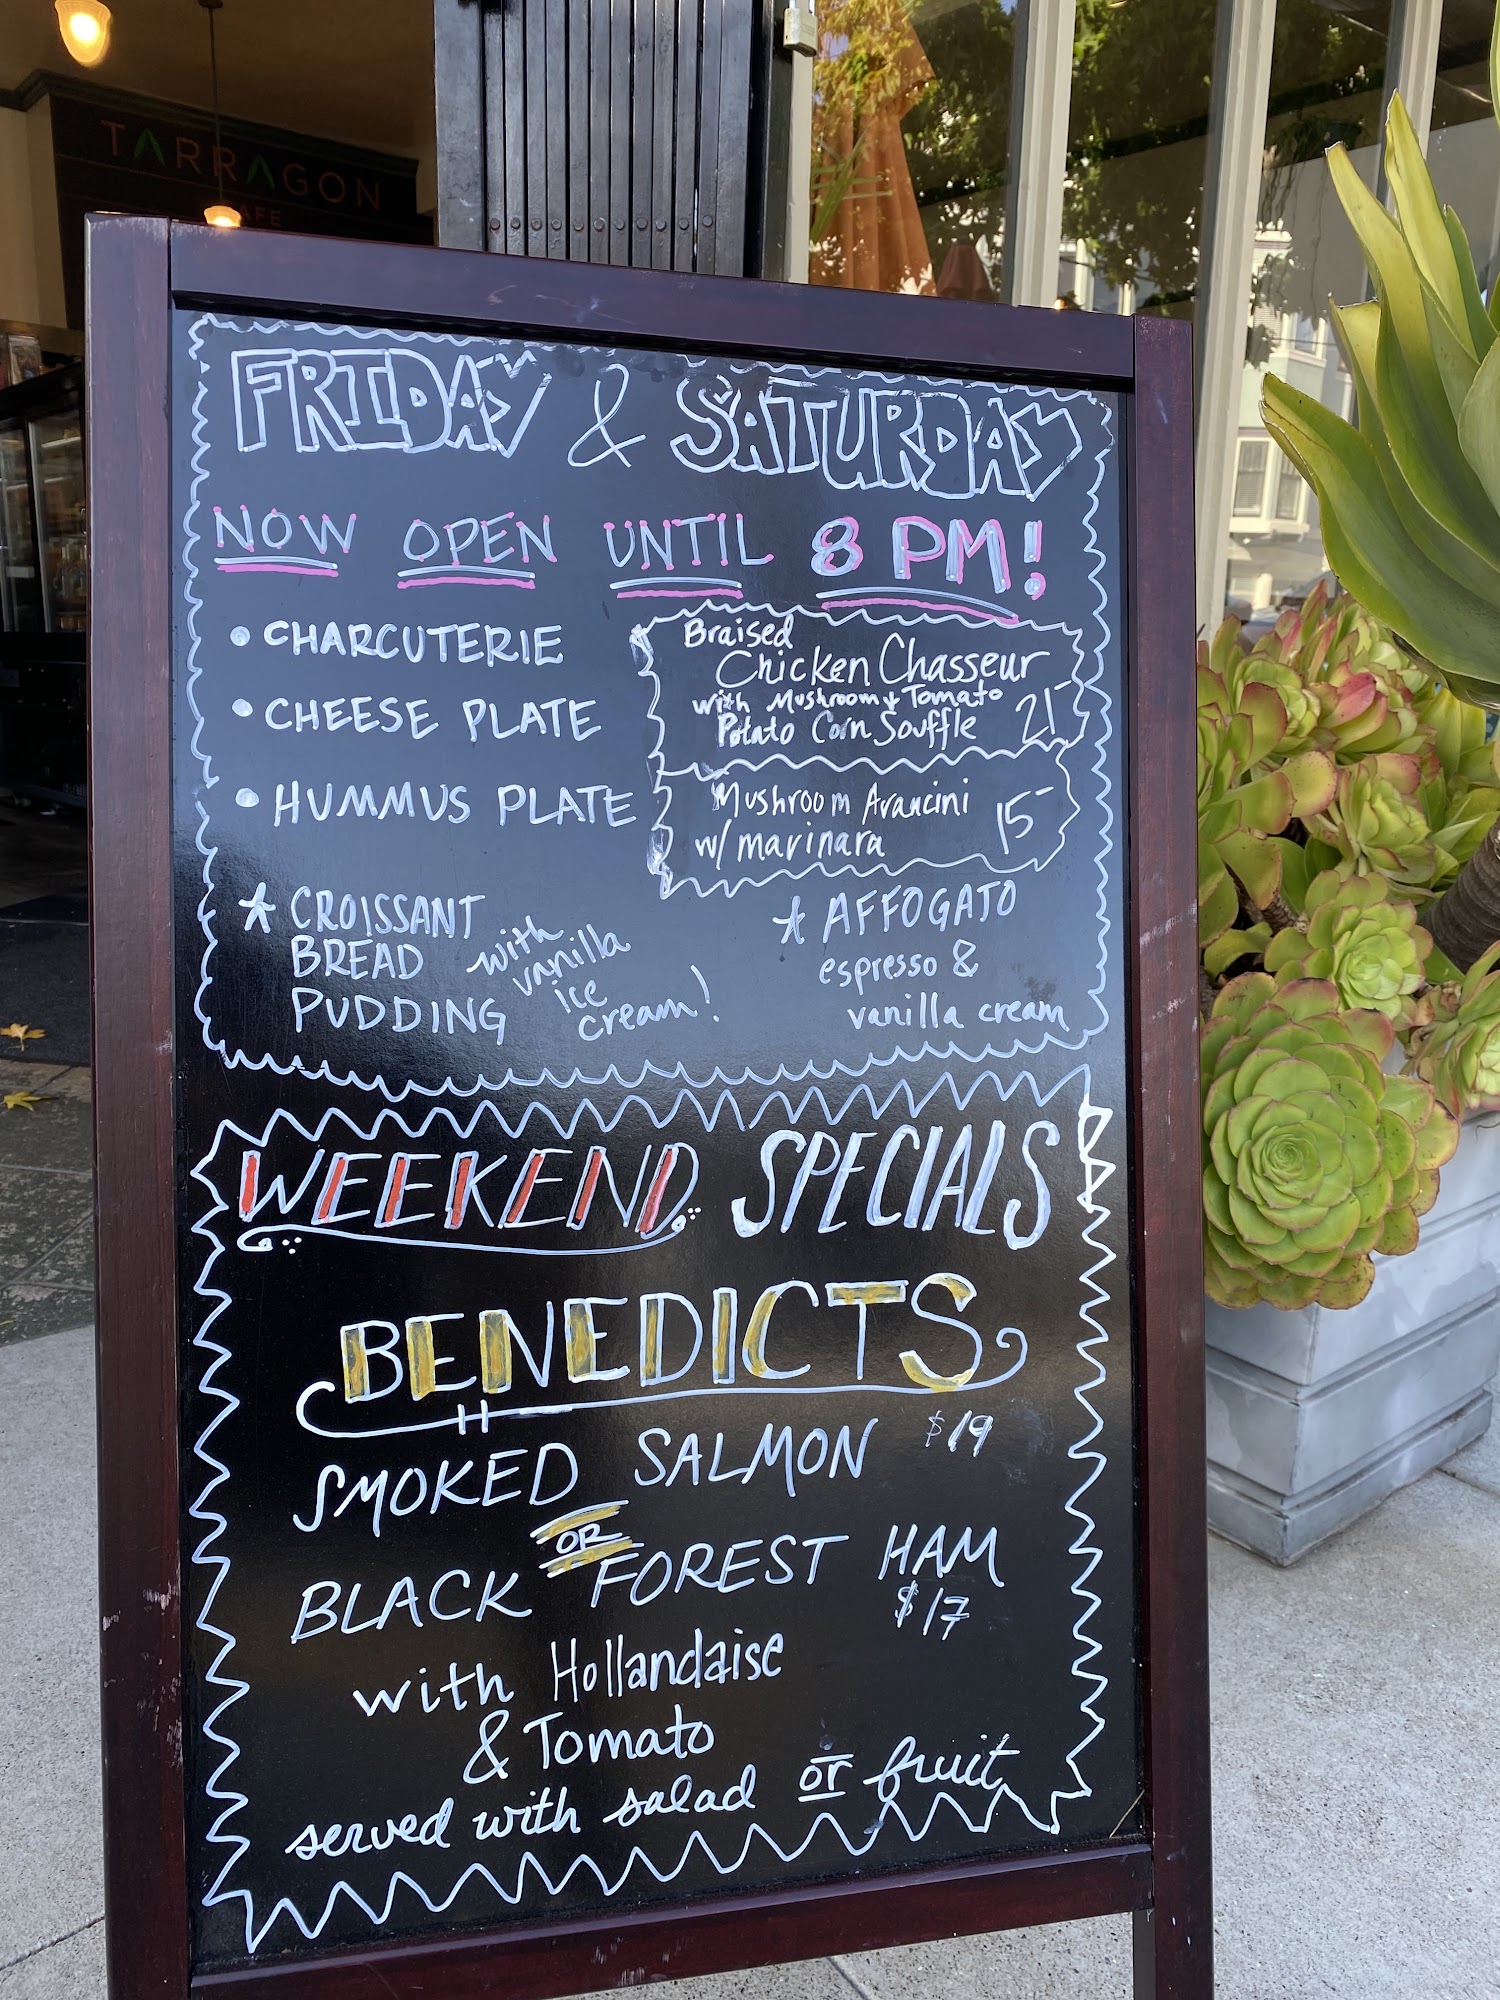 TARRAGON
CAFE
FRIDAY & SATURDAY
NOW OPEN UNTIL 8 PM!
• CHARCUTERIE
• CHEESE PLATE
• HUMMUS PLATE
Braised
Chicken Chasseur
with Mushroom & Tomato
Potato Corn Souffle 21-
Mushroom Arancini
w/ marinara 15-
★ CROISSANT
BREAD
PUDDING
with
vanilla
ice
cream!
★ AFFOGATO
espresso &
vanilla cream
WEEKEND SPECIALS
BENEDICTS
SMOKED SALMON $19
OR
BLACK FOREST HAM
$17
with Hollandaise
& Tomato
served with salad or fruit